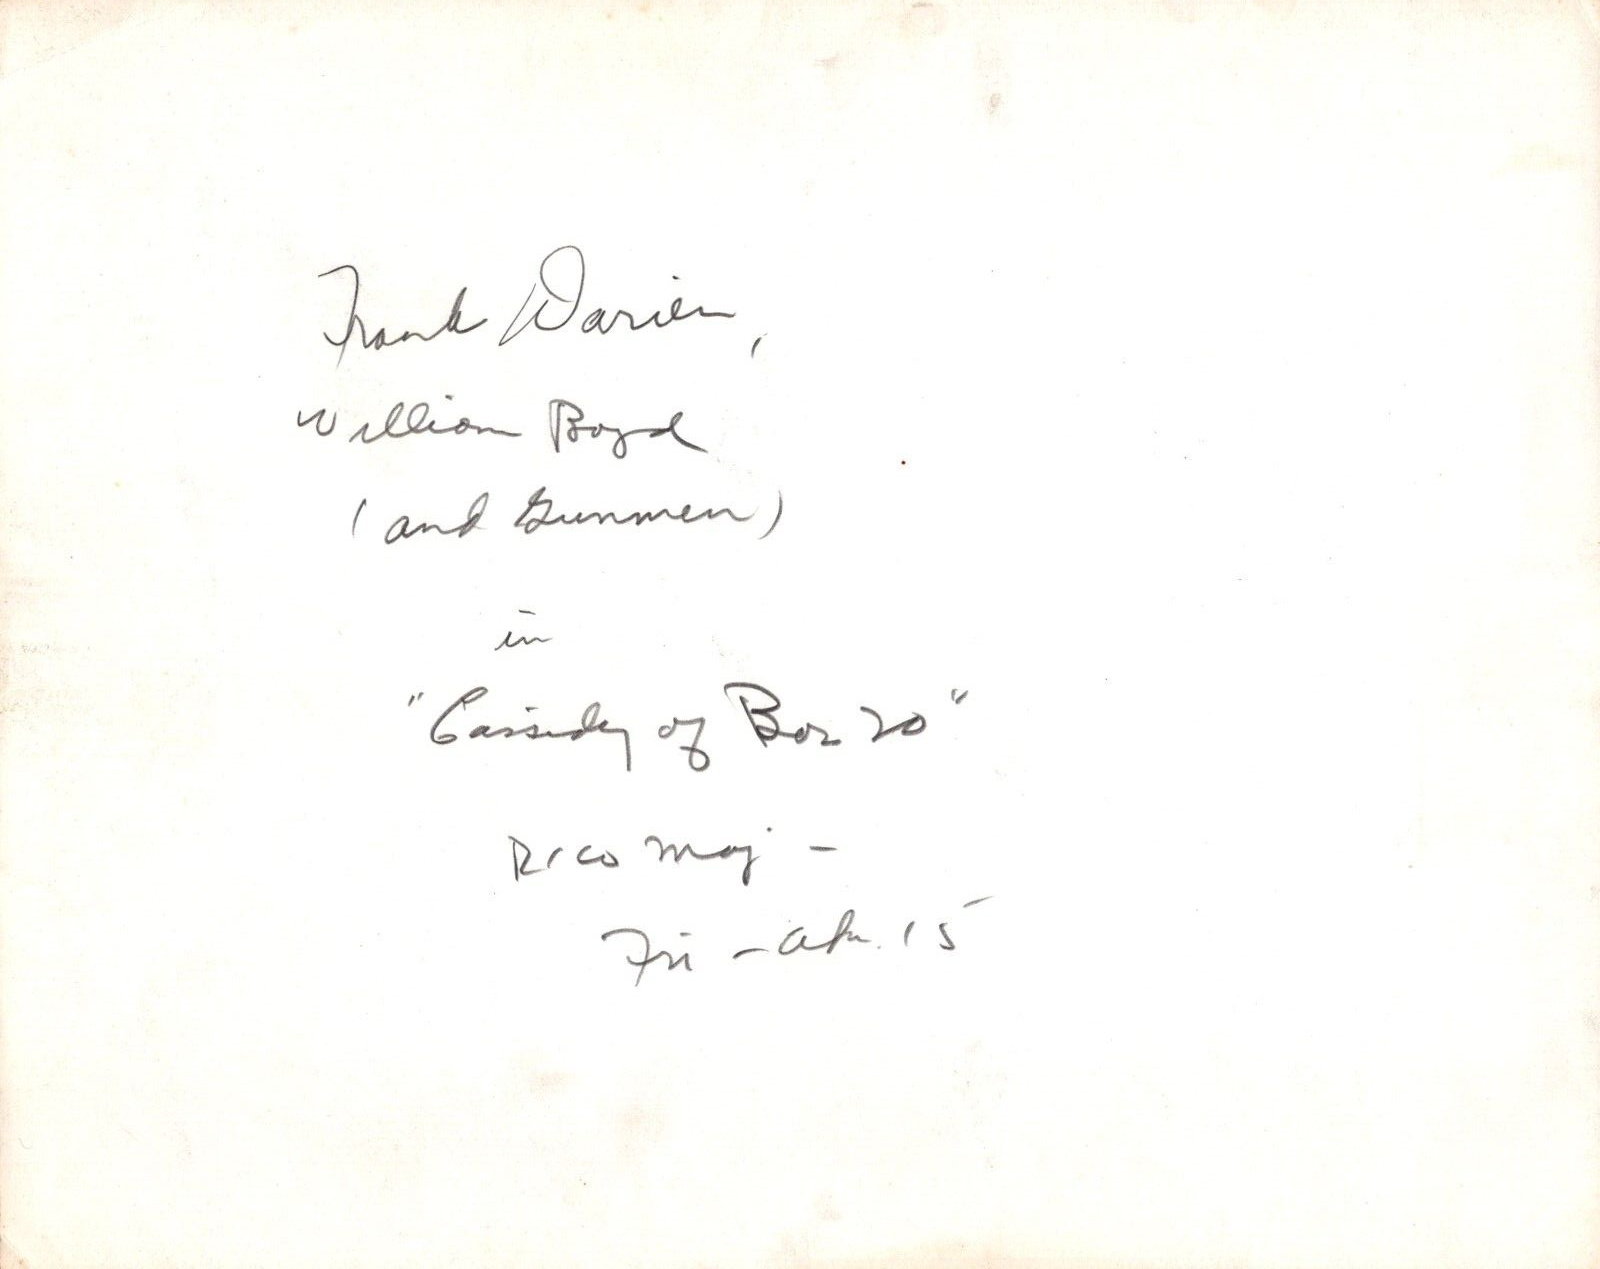 Frank Darien,
William Boyd
(and Gunmen)
in
"Cassidy of Bar 20"
Rico Maj -
Fri - Apr. 15